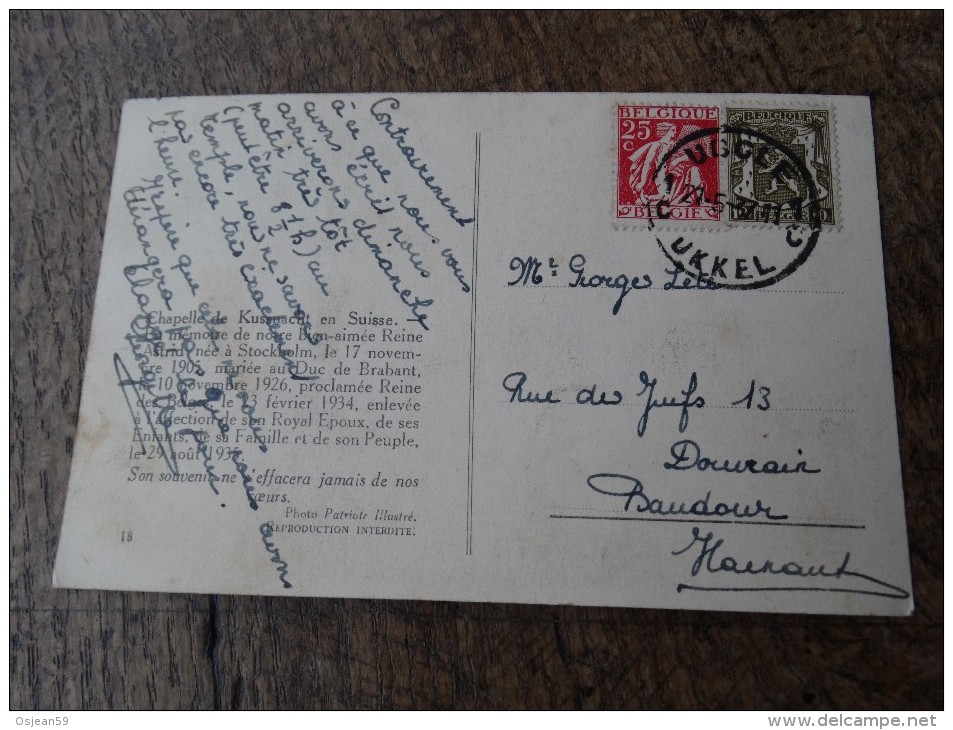 Contrairement
à ce que nous vous
avons écrit nous
arriverons dimanche
matin très tôt
(peut être 8 1/2 h) au
temple, nous ne savons
pas encore très exactement
l'heure.
J'espère que cela ne vous
dérangera pas
Chapelle de Kussnacht en Suisse.
La mémoire de notre bien-aimée Reine
Astrid née à Stockholm, le 17 novem-
bre 1905, mariée au Duc de Brabant,
le 10 novembre 1926, proclamée Reine
des Belges le 23 février 1934, enlevée
à l'affection de son Royal Epoux, de ses
Enfants, de sa Famille et de son Peuple,
le 29 août 1935.
Son souvenir ne s'effacera jamais de nos
cœurs.
Photo Patriote Illustré.
REPRODUCTION INTERDITE.
18
BELGIQUE
25
C
BELGIE
BELGIQUE
10
UCCLE
UKKEL
C C
Mr Georges
Rue des Juifs 13
Douvrain
Baudour
Hainaut
Osjean59
www.delcampe.net